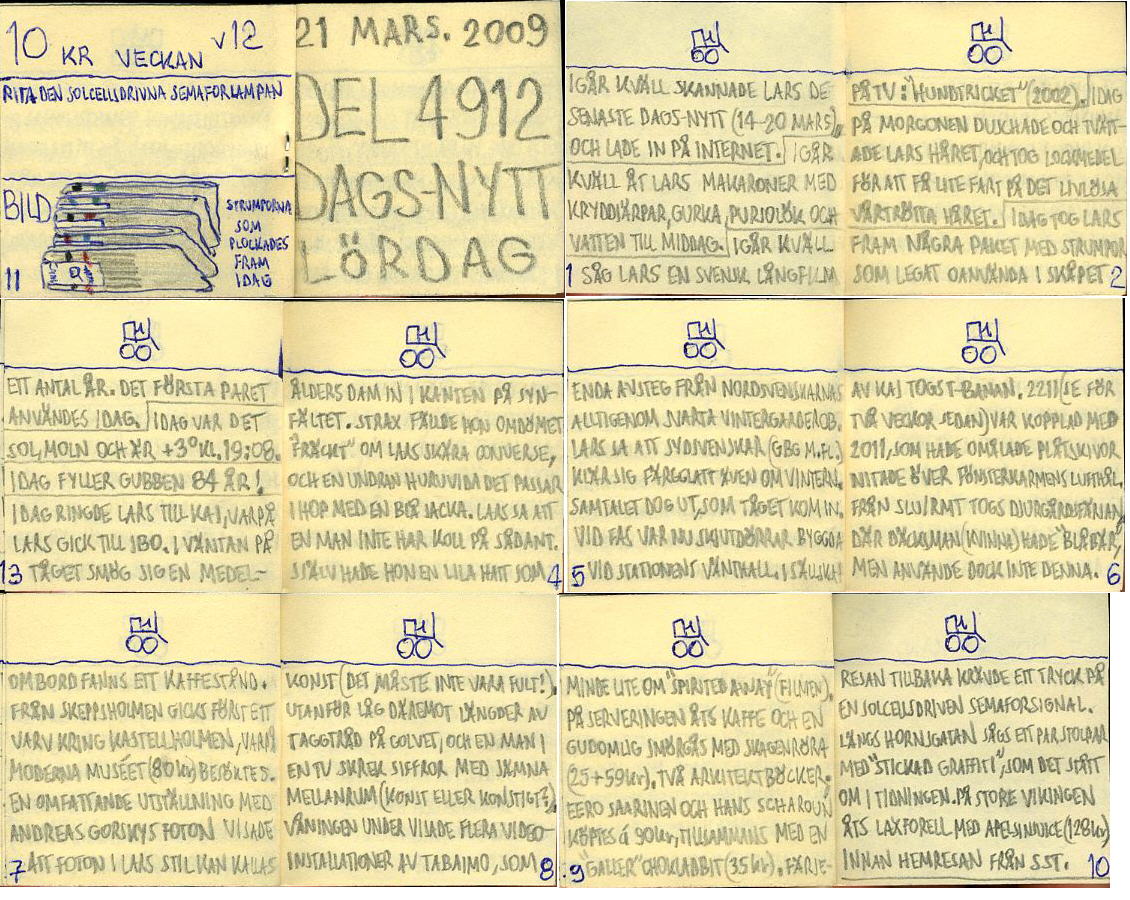 10 KR VECKAN V12
RITA DEN SOLCELLSDRIVNA SEMAFORLAMPAN
BILD
STRUMPORNA
SOM
PLOCKADES
FRAM
IDAG
11
21 MARS. 2009
DEL 4912
DAGS-NYTT
LÖRDAG
IGÅR KVÄLL SKANNADE LARS DE
SENASTE DAGS-NYTT (14-20 MARS),
OCH LADE IN PÅ INTERNET. IGÅR
KVÄLL ÅT LARS MAKARONER MED
KRYDDJÄRPAR, GURKA, PURJOLÖK OCH
VATTEN TILL MIDDAG. IGÅR KVÄLL
1 SÅG LARS EN SVENSK LÅNGFILM
PÅ TV: "HUNDTRICKET" (2002). IDAG
PÅ MORGONEN DUSCHADE OCH TVÄTT-
ADE LARS HÅRET, OCH TOG LOCKMEDEL
FÖR ATT FÅ LITE FART PÅ DET LIVLÖSA
VÅRTRÖTTA HÅRET. IDAG TOG LARS
FRAM NÅGRA PAKET MED STRUMPOR
SOM LEGAT OANVÄNDA I SKÅPET 2
ETT ANTAL ÅR. DET FÖRSTA PARET
ANVÄNDES IDAG. IDAG VAR DET
SOL, MOLN OCH ÄR +3° KL. 19:08.
IDAG FYLLER GUBBEN 84 ÅR!
IDAG RINGDE LARS TILL KAJ, VARPÅ
LARS GICK TILL IBO. I VÄNTAN PÅ
13 TÅGET SMÖG SIG EN MEDEL-
ÅLDERS DAM IN I KANTEN PÅ SYN-
FÄLTET. STRAX FÄLLDE HON OMDÖMET
"FRÄCKT" OM LARS SKÄRA CONVERSE,
OCH EN UNDRAN HURUVIDA DET PASSAR
IHOP MED EN BLÅ JACKA. LARS SA ATT
EN MAN INTE HAR KOLL PÅ SÅDANT.
SJÄLV HADE HON EN LILA HATT SOM 4
ENDA AVSTEG FRÅN NORDSVENSKARNAS
ALLTIGENOM SVARTA VINTERGARDEROB.
LARS SA ATT SYDSVENSKAR (GBG M.FL.)
KLÄR SIG FÄRGGLATT ÄVEN OM VINTERN.
SAMTALET DOG UT, SOM TÅGET KOM IN.
VID FAS VAR NU SKJUTDÖRRAR BYGGDA
5 VID STATIONENS VÄNTHALL. I SÄLLSKAP
AV KAJ TOGS T-BANAN. 2211 (SE FÖR
TVÅ VECKOR SEDAN) VAR KOPPLAD MED
2011, SOM HADE OMÅLADE PLÅTSKIVOR
NITADE ÖVER FÖNSTERKARMENS LUFTHÅL.
FRÅN SLU/RMT TOGS DJURGÅRDSFÄRJAN,
DÄR DÄCKSMAN (KVINNA) HADE "BLÅBÄR",
MEN ANVÄNDE DOCK INTE DENNA. 6
OMBORD FANNS ETT KAFFESTÅND.
FRÅN SKEPPSHOLMEN GICKS FÖRST ETT
VARV KRING KASTELLHOLMEN, VARPÅ
MODERNA MUSÉET (80 kr) BESÖKTES.
EN OMFATTANDE UTSTÄLLNING MED
ANDREAS GORSKYS FOTON VISADE
7 ATT FOTON I LARS STIL KAN KALLAS
KONST (DET MÅSTE INTE VARA FULT!).
UTANFÖR LÅG DÄREMOT LÄNGDER AV
TAGGTRÅD PÅ GOLVET, OCH EN MAN I
EN TV SKREK SIFFROR MED JÄMNA
MELLANRUM (KONST ELLER KONSTIGT?).
VÅNINGEN UNDER VISADE FLERA VIDEO-
INSTALLATIONER AV TABAIMO, SOM 8
MINDE LITE OM "SPIRITED AWAY" (FILMEN).
PÅ SERVERINGEN ÅTS KAFFE OCH EN
GUDOMLIG SMÖRGÅS MED SKAGENRÖRA
(25+59kr). TVÅ ARKITEKTBÖCKER:
EERO SAARINEN OCH HANS SCHAROUN
KÖPTES á 90kr, TILLSAMMANS MED EN
9 "GALLER" CHOKLADBIT (35 kr). FÄRJE-
RESAN TILLBAKA KRÄVDE ETT TRYCK PÅ
EN SOLCELLSDRIVEN SEMAFORSIGNAL.
LÄNGS HORNSGATAN SÅGS ETT PAR STOLPAR
MED "STICKAD GRAFFITI", SOM DET STÅTT
OM I TIDNINGEN. PÅ STORE VIKINGEN
ÅTS LAXFORELL MED APELSINJUICE (128kr)
INNAN HEMRESAN FRÅN SST. 10